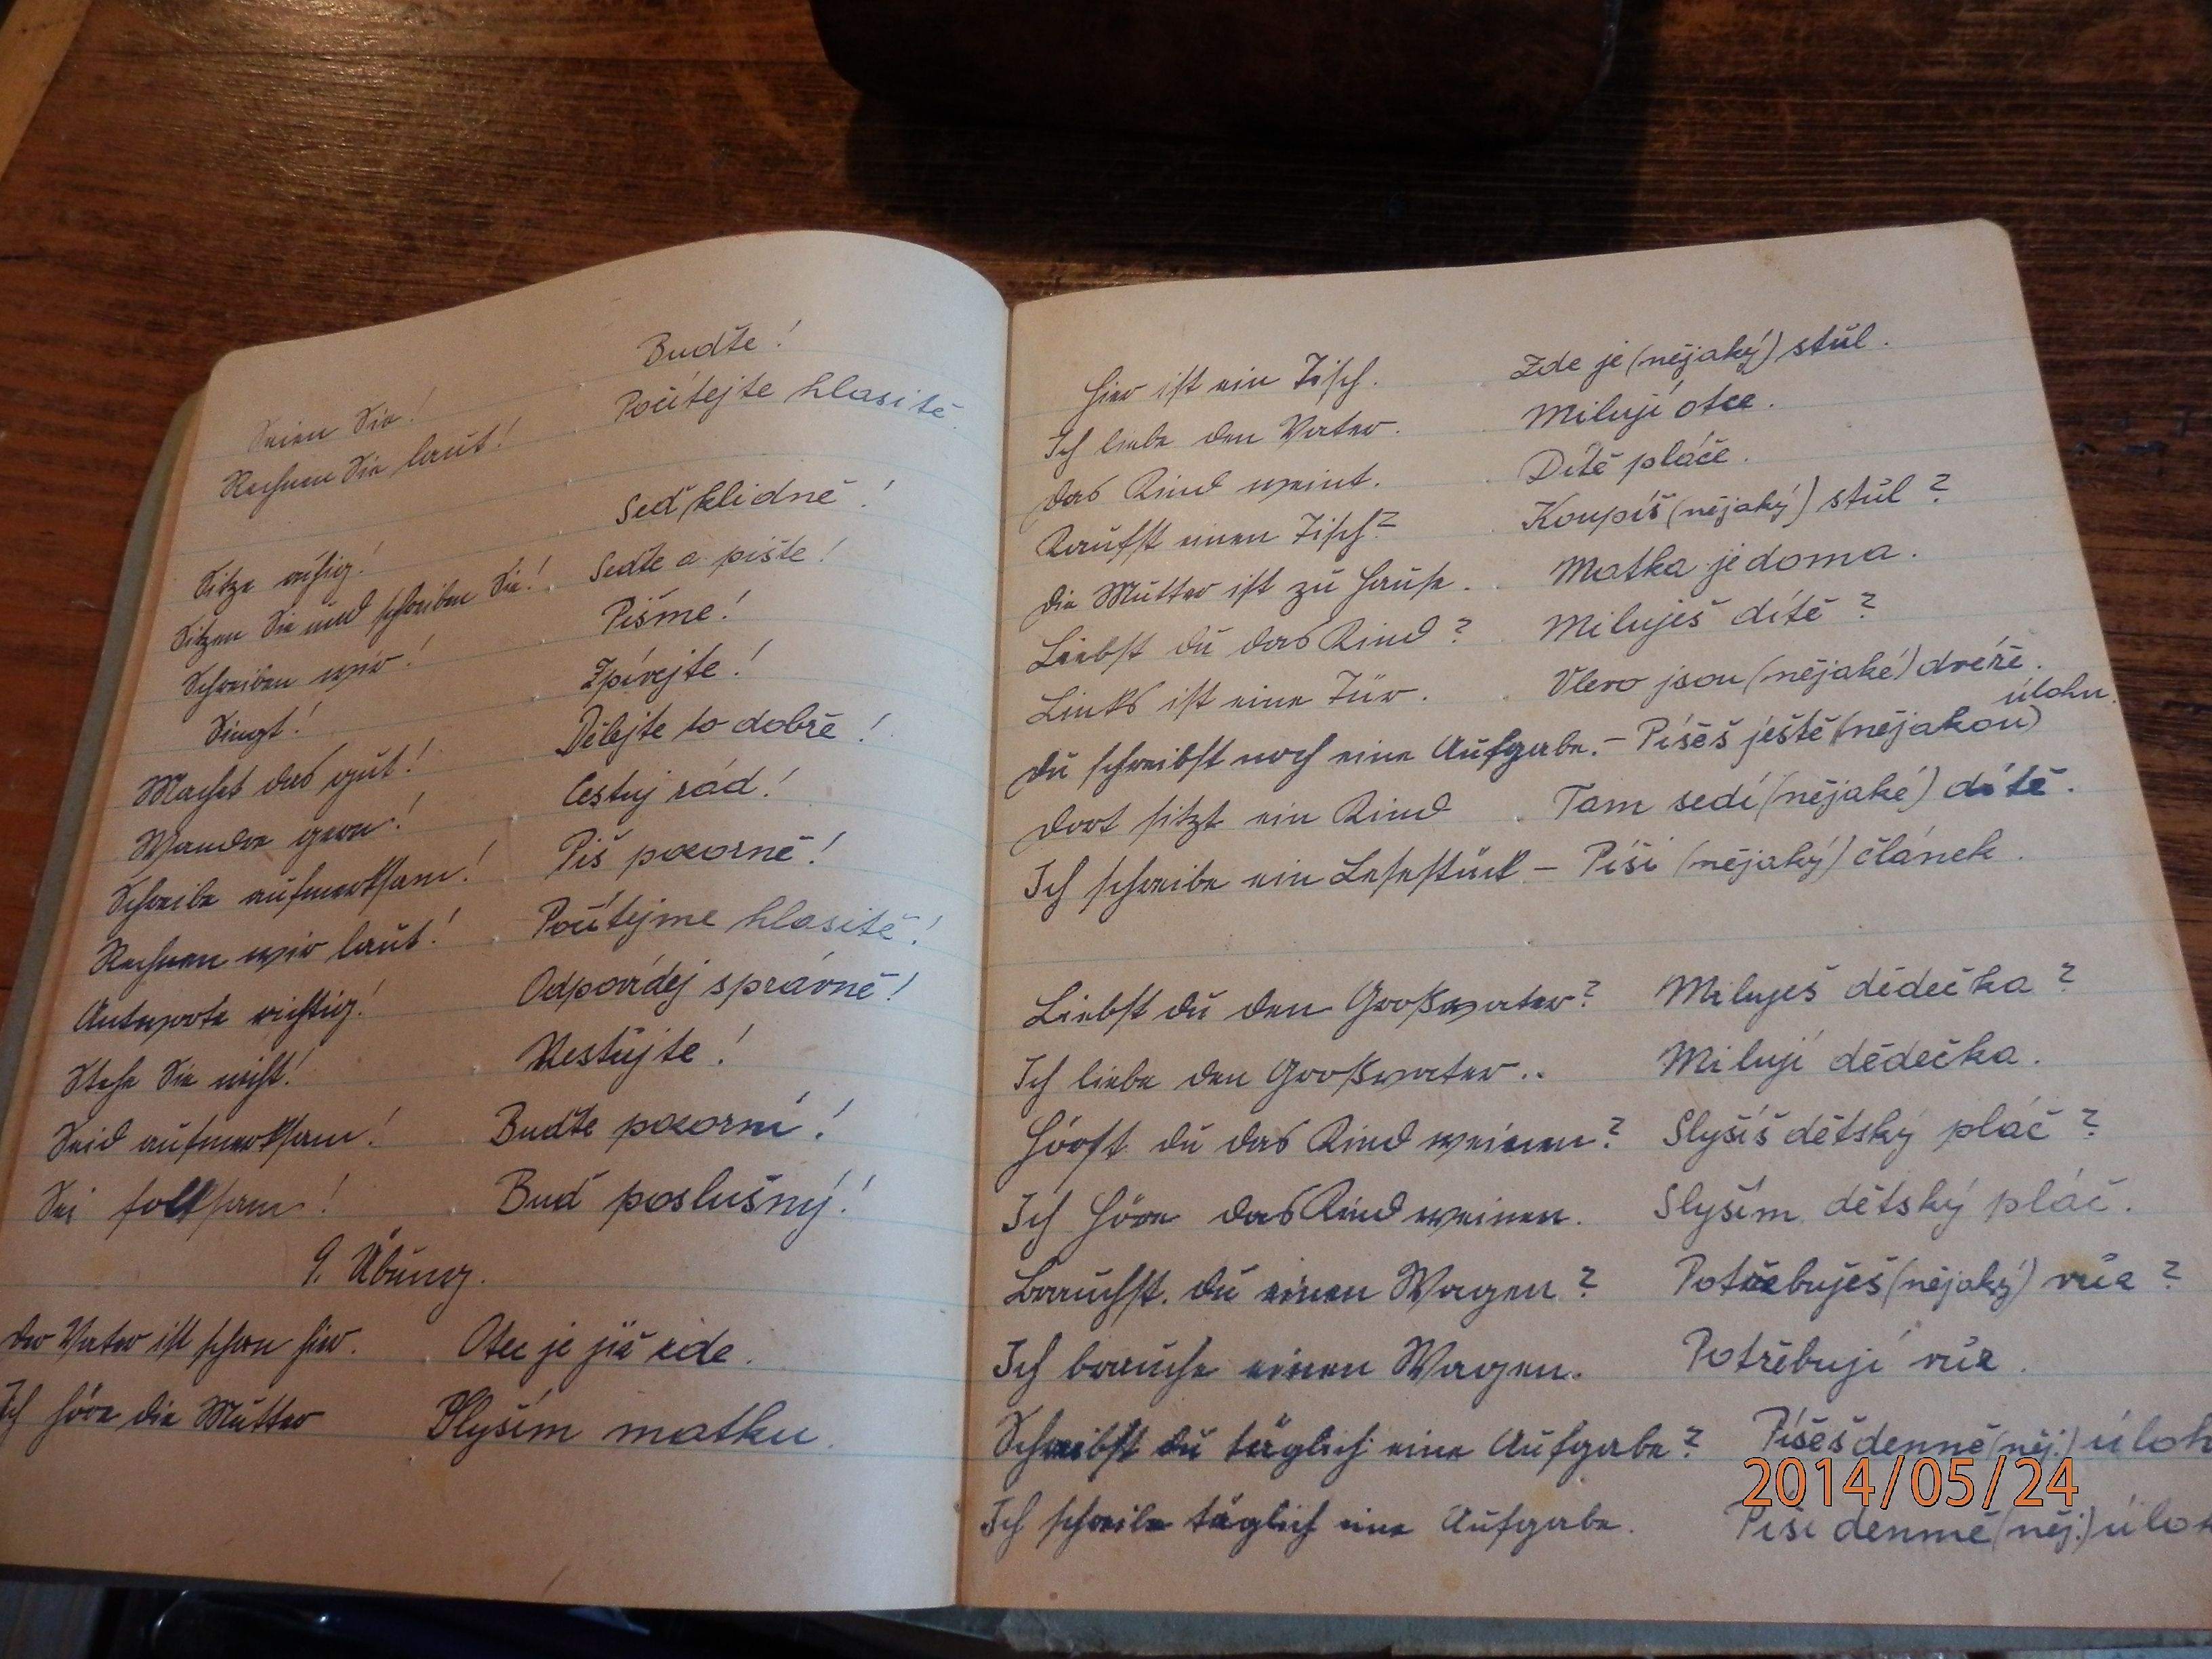 Seien Sie! Buďte!
Rechnen Sie laut! Počítejte hlasitě.
Sitze ruhig! Seď klidně!
Sitzen Sie und schreiben Sie! Seďte a pište!
Schreiben wir! Pišme!
Singt! Zpívejte!
Macht das gut! Dělejte to dobře!
Wandre gern! Cestuj rád!
Schreibe aufmerksam! Piš pozorně!
Rechnen wir laut! Počítejme hlasitě!
Antworte richtig! Odpovídej správně!
Stehe Sie nicht! Nestůjte!
Seid aufmerksam! Buďte pozorní!
Sei folksam! Buď poslušný!
9. Übung.
Der Vater ist schon hier. Otec je již zde.
Ich höre die Mutter Slyším matku.
Hier ist ein Tisch. Zde je (nějaký) stůl.
Ich liebe den Vater. Miluji otce.
Das Kind weint. Dítě pláče.
Kaufst einen Tisch? Koupíš (nějaký) stůl?
Die Mutter ist zu Hause. Matka je doma.
Liebst du das Kind? Miluješ dítě?
Links ist eine Tür. Vlevo jsou (nějaké) dveře.
Du schreibst noch eine Aufgabe. – Píšeš ještě (nějakou) úlohu.
Dort sitzt ein Kind Tam sedí (nějaké) dítě.
Ich schreibe ein Lesestück – Píši (nějaký) článek.
Liebst du den Großvater? Miluješ dědečka?
Ich liebe den Großvater.. Miluji dědečka.
Hörst du das Kind weinen? Slyšíš dětský pláč?
Ich höre das Kind weinen. Slyším dětský pláč.
Brauchst du einen Wagen? Potřebuješ (nějaký) vůz?
Ich brauche einen Wagen. Potřebuji vůz.
Schreibst du täglich eine Aufgabe? Píšeš denně (něj.) úloh
Ich schreibe täglich eine Aufgabe. Píši denně (něj.) úloh
2014/05/24